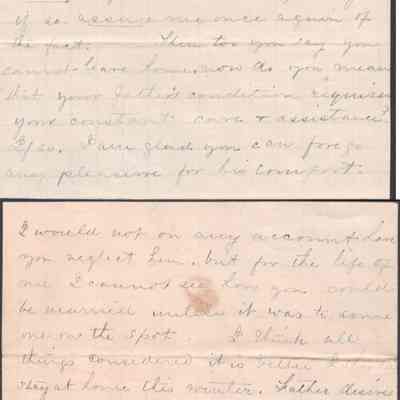 if so assure me once again of
the fact. Then too you say you
cannot leave home now do you mean
that your Father's condition requires
your constant care & assistance?
If so. I am glad you can forego
any pleasure for his comfort.
I would not on any account have
you neglect him, but for the life of
me I cannot see how you could
be married unless it was to some
one on the spot. I think all
things considered it is better I
stay at home this winter. Father desires